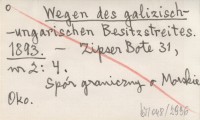 Wegen des galizisch-
-ungarischen Besitzstreites.
1893. — Zipser Bote 31,
nr 2: 4.
Spór graniczny o Morskie
Oko.